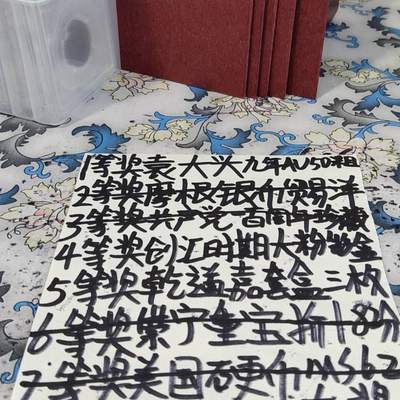 1等奖袁大头九年AU50粗
2等奖摩根银币贸易洋
3等奖共产党一百周年珍藏
4等奖创汇时期大粉金
5等奖乾道嘉套盒三枚
6等奖崇宁重宝82分
7等奖美国硬币MS62